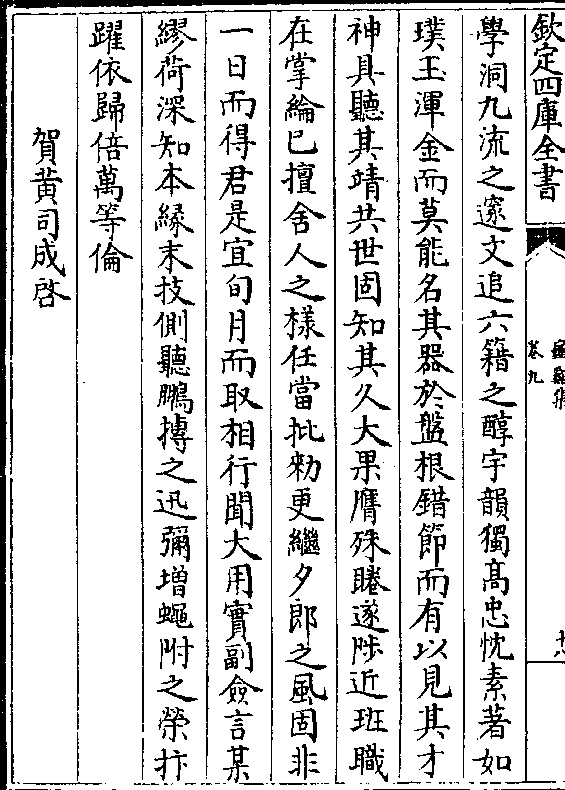 欽定四庫全書
卷九
學洞九流之邃文追六籍之醇宇韻獨髙忠忱素著如
璞玉渾金而莫能名其器於盤根錯節而有以見其才
神具聽其靖共世固知其久大果膺殊睠遂陟近班職
在掌綸已擅舍人之樣任當批勑更繼夕郎之風固非
一日而得君是宜旬月而取相行聞大用實副僉言某
繆荷深知本緣末技側聽鵬摶之迅彌增蠅附之榮抃
躍依歸倍萬等倫
賀黄司成啓